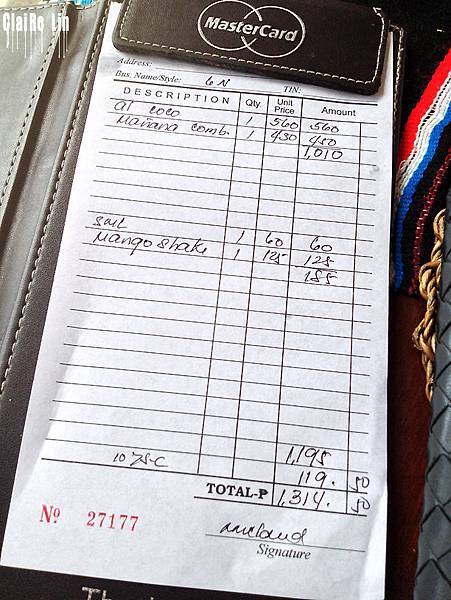 ClaiRe Lin
MasterCard
Address:
Bus. Name/Style: 6 N TIN:
DESCRIPTION Qty. Unit Price Amount
al coco 1 560 560
Mañana comb. 1 450 450
1,010
1 60 60
Mango shake 1 125 125
185
1,195
10% S-C 119. 50
TOTAL-P 1,314. 50
Nº 27177
Signature